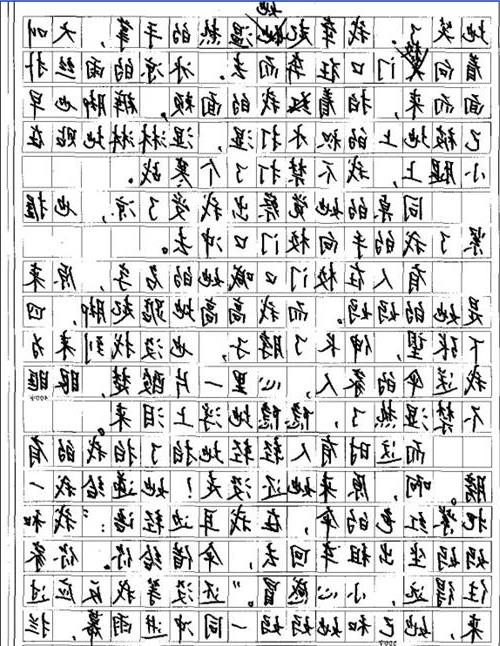 地笑了。我牵起她温热的手掌，大叫
着向校门口狂奔而去。冰凉的雨丝扑
面而来，拍着红我的面颊，裤脚也早
已被地上的积水打湿，湿淋淋地贴在
小腿上，我不禁打了个寒战。
同桌的她觉察出我受了凉，也握
紧了我的手向校门口冲去。
有人在校门口喊她的名字，原来
是她的妈妈。而我高高地踮起脚，四
下张望，伸长了脖子，也没找到来为
我送伞的家人，心里一片酸楚，眼眶
不禁湿热了，隐隐地浮上泪来。
而这时有人轻轻地拍了拍我的肩
膀。啊，原来她还没走！她递给我一
把紫红色的伞，在我耳边轻语：“我和
妈妈坐出租车回去，伞借给你。你家
住得远，小心感冒。”还没等我反应过
来，她已和她妈妈一同冲进雨幕，拦